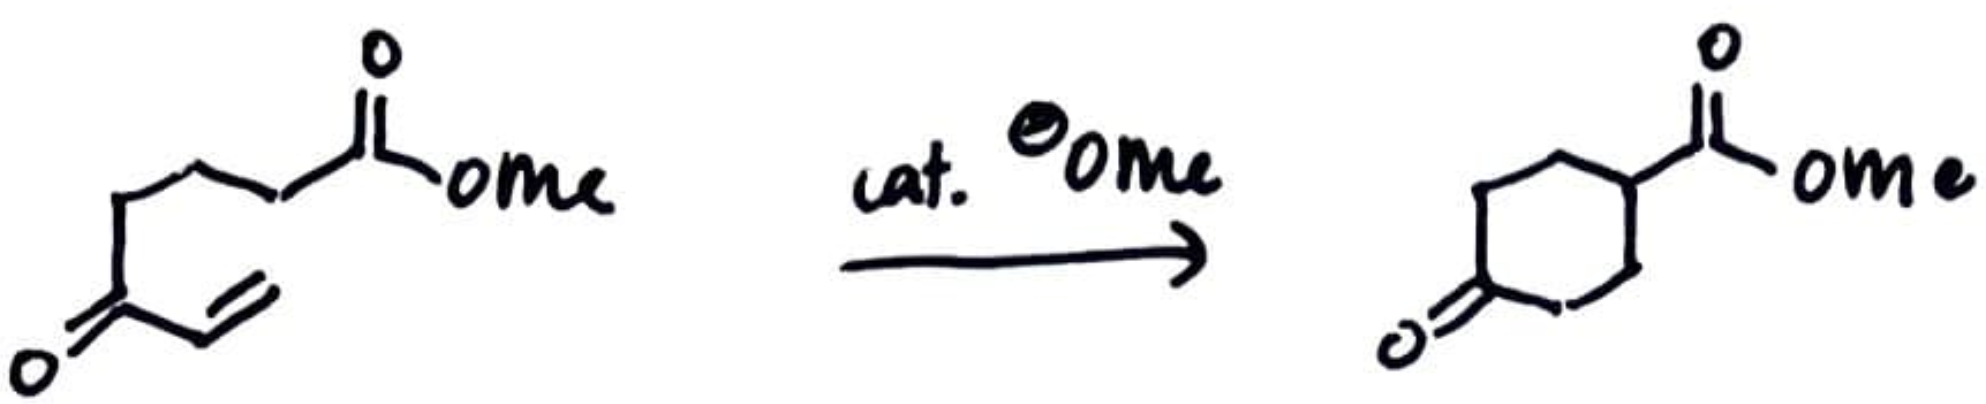 O
OMe
O
cat. ⊖OMe
O
OMe
O